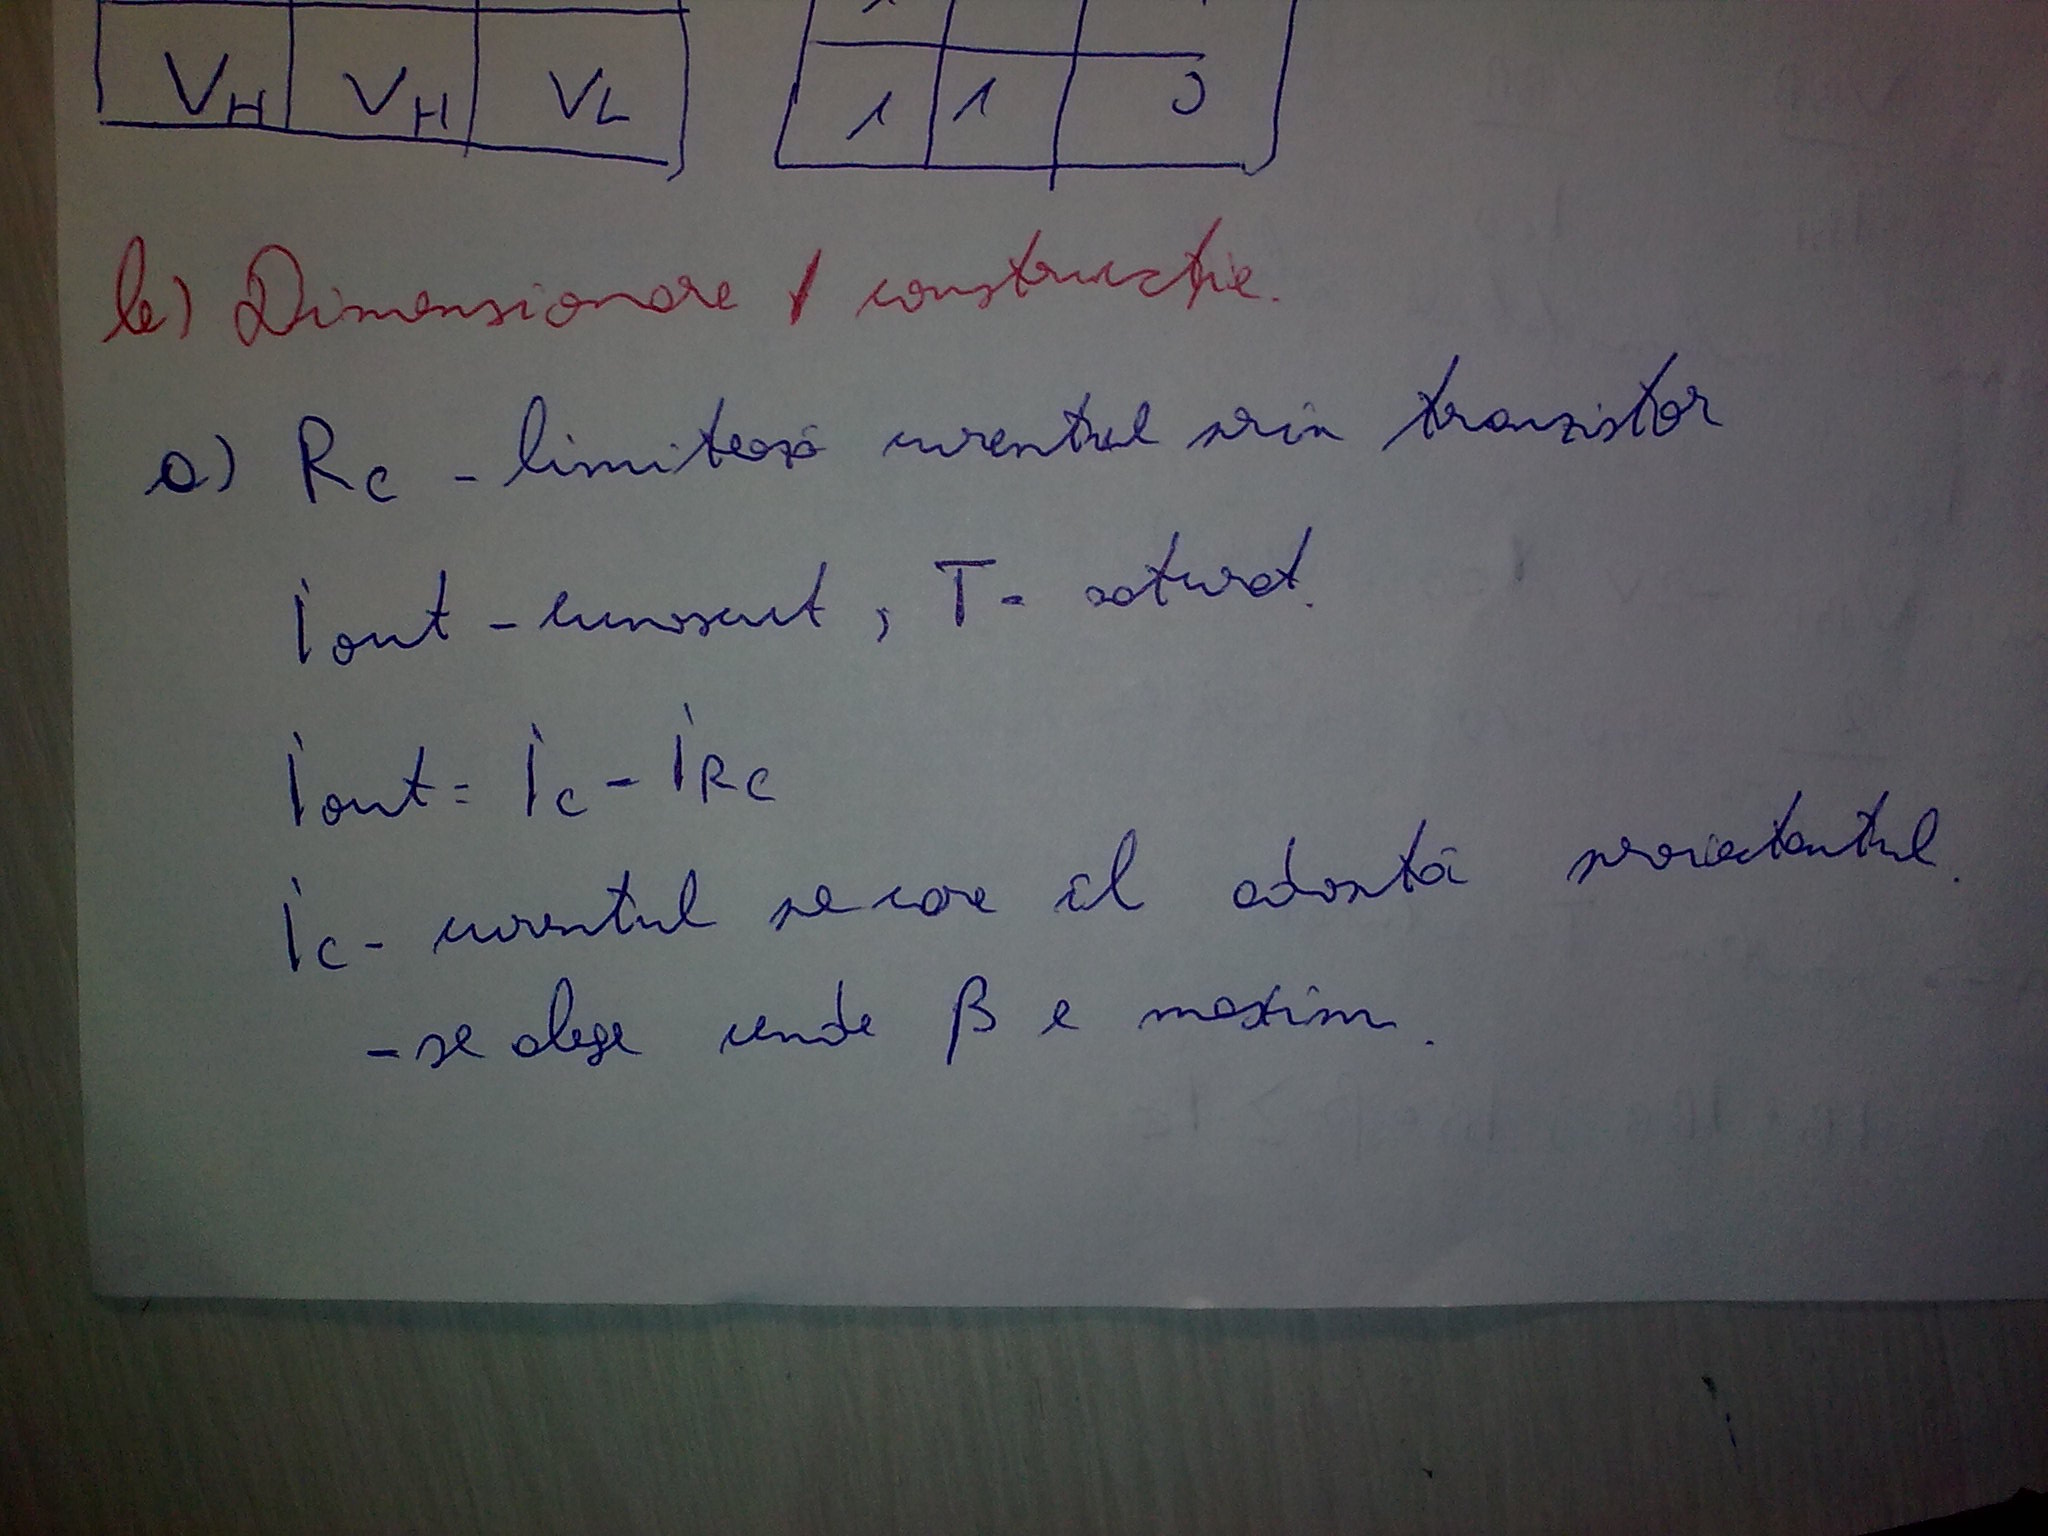 VH VH VL 1 1 0
b) Dimensionare / construcție.
a) Rc - limitează curentul prin tranzistor
iout - cunoscut, T - saturat.
iout = ic - iRc
ic - curentul pe care îl adoptă proiectantul.
- se alege unde β e maxim.